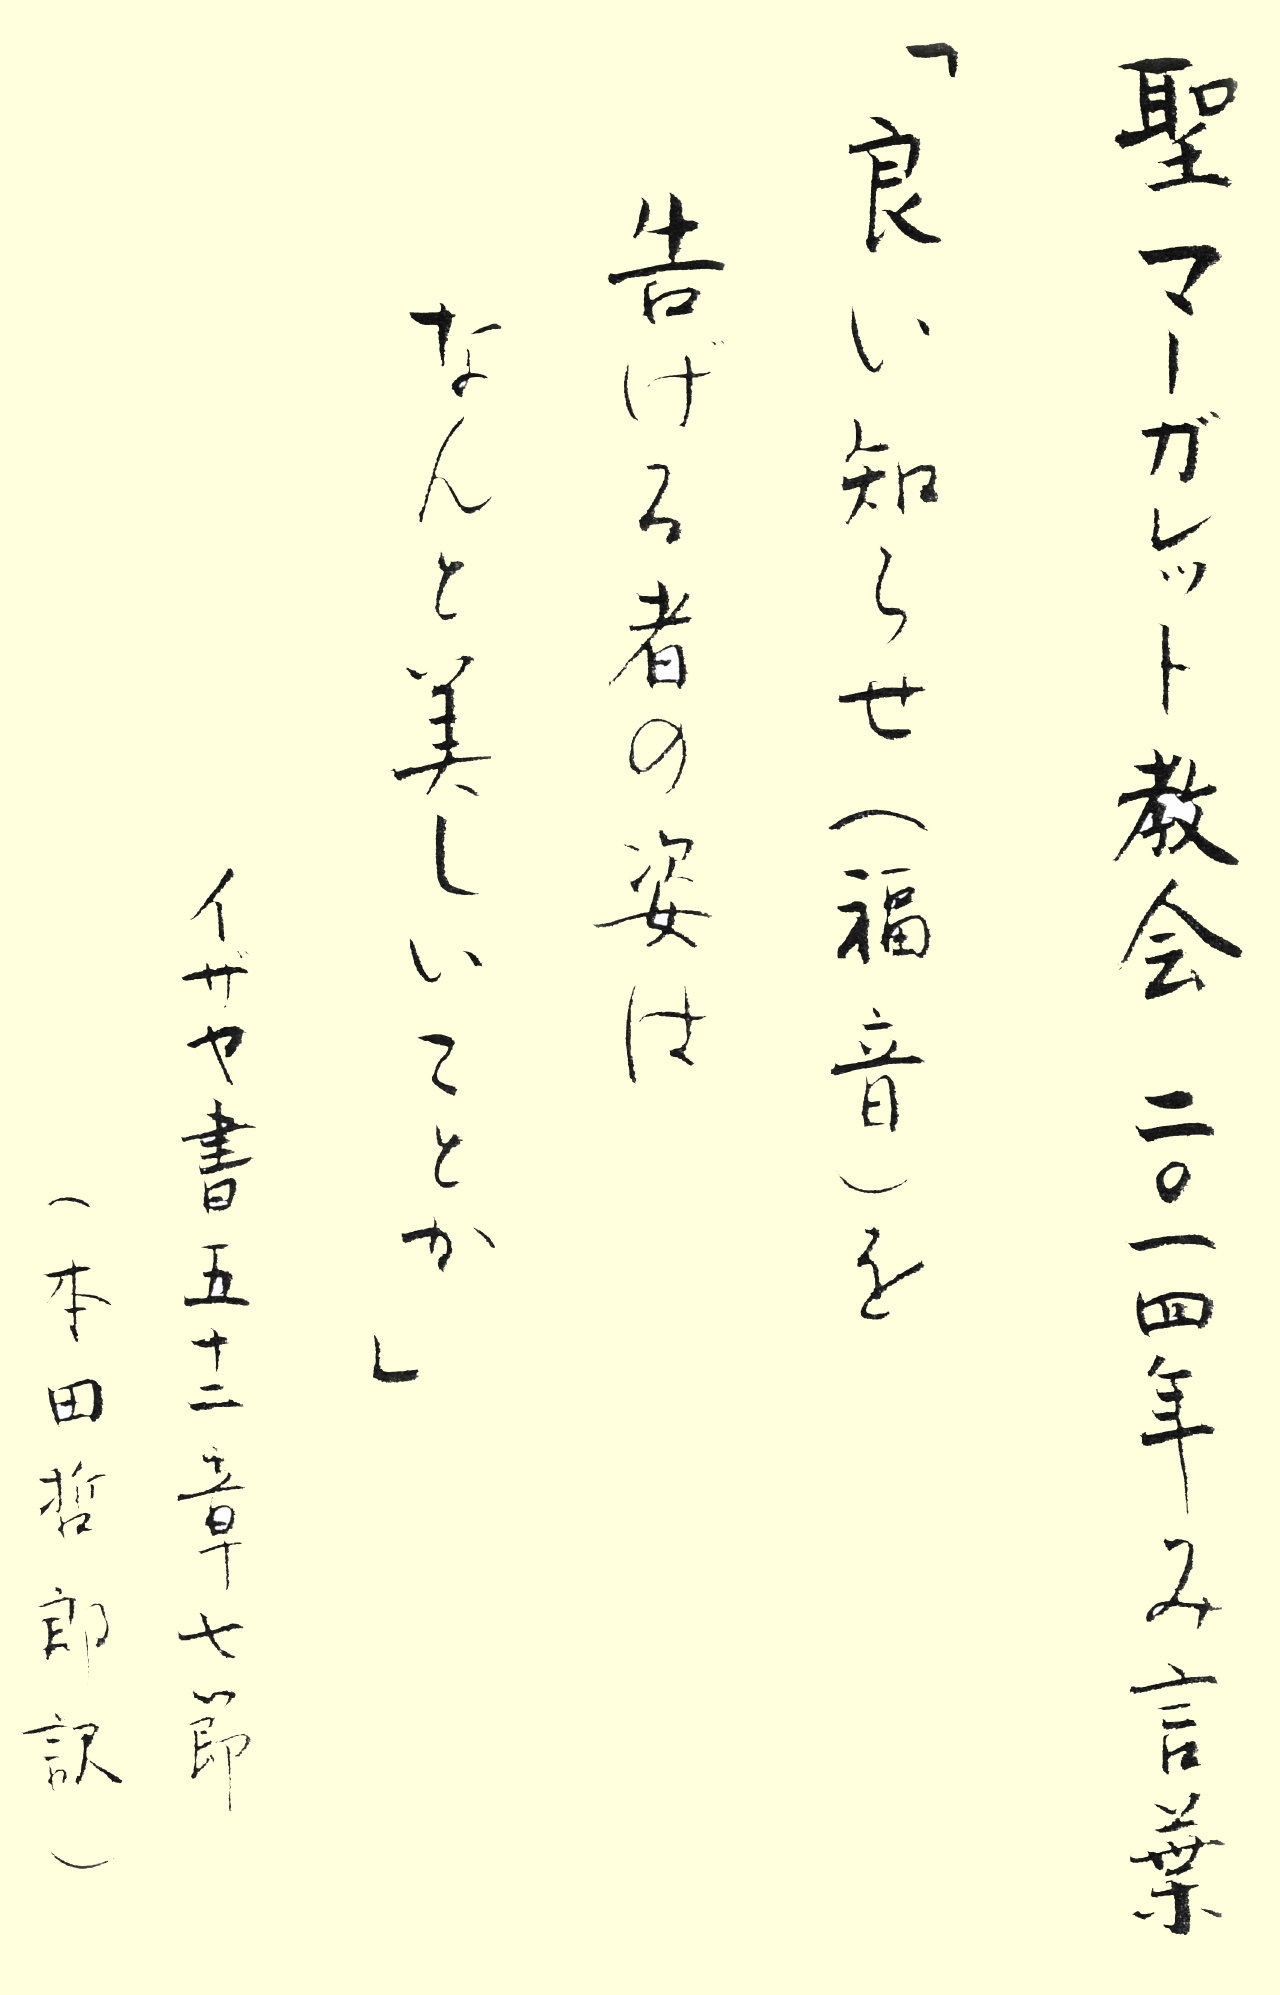 聖マーガレット教会　二〇一四年み言葉
「良い知らせ（福音）を
告げる者の姿は
なんと美しいことか」
イザヤ書五十二章七節
（本田哲郎訳）